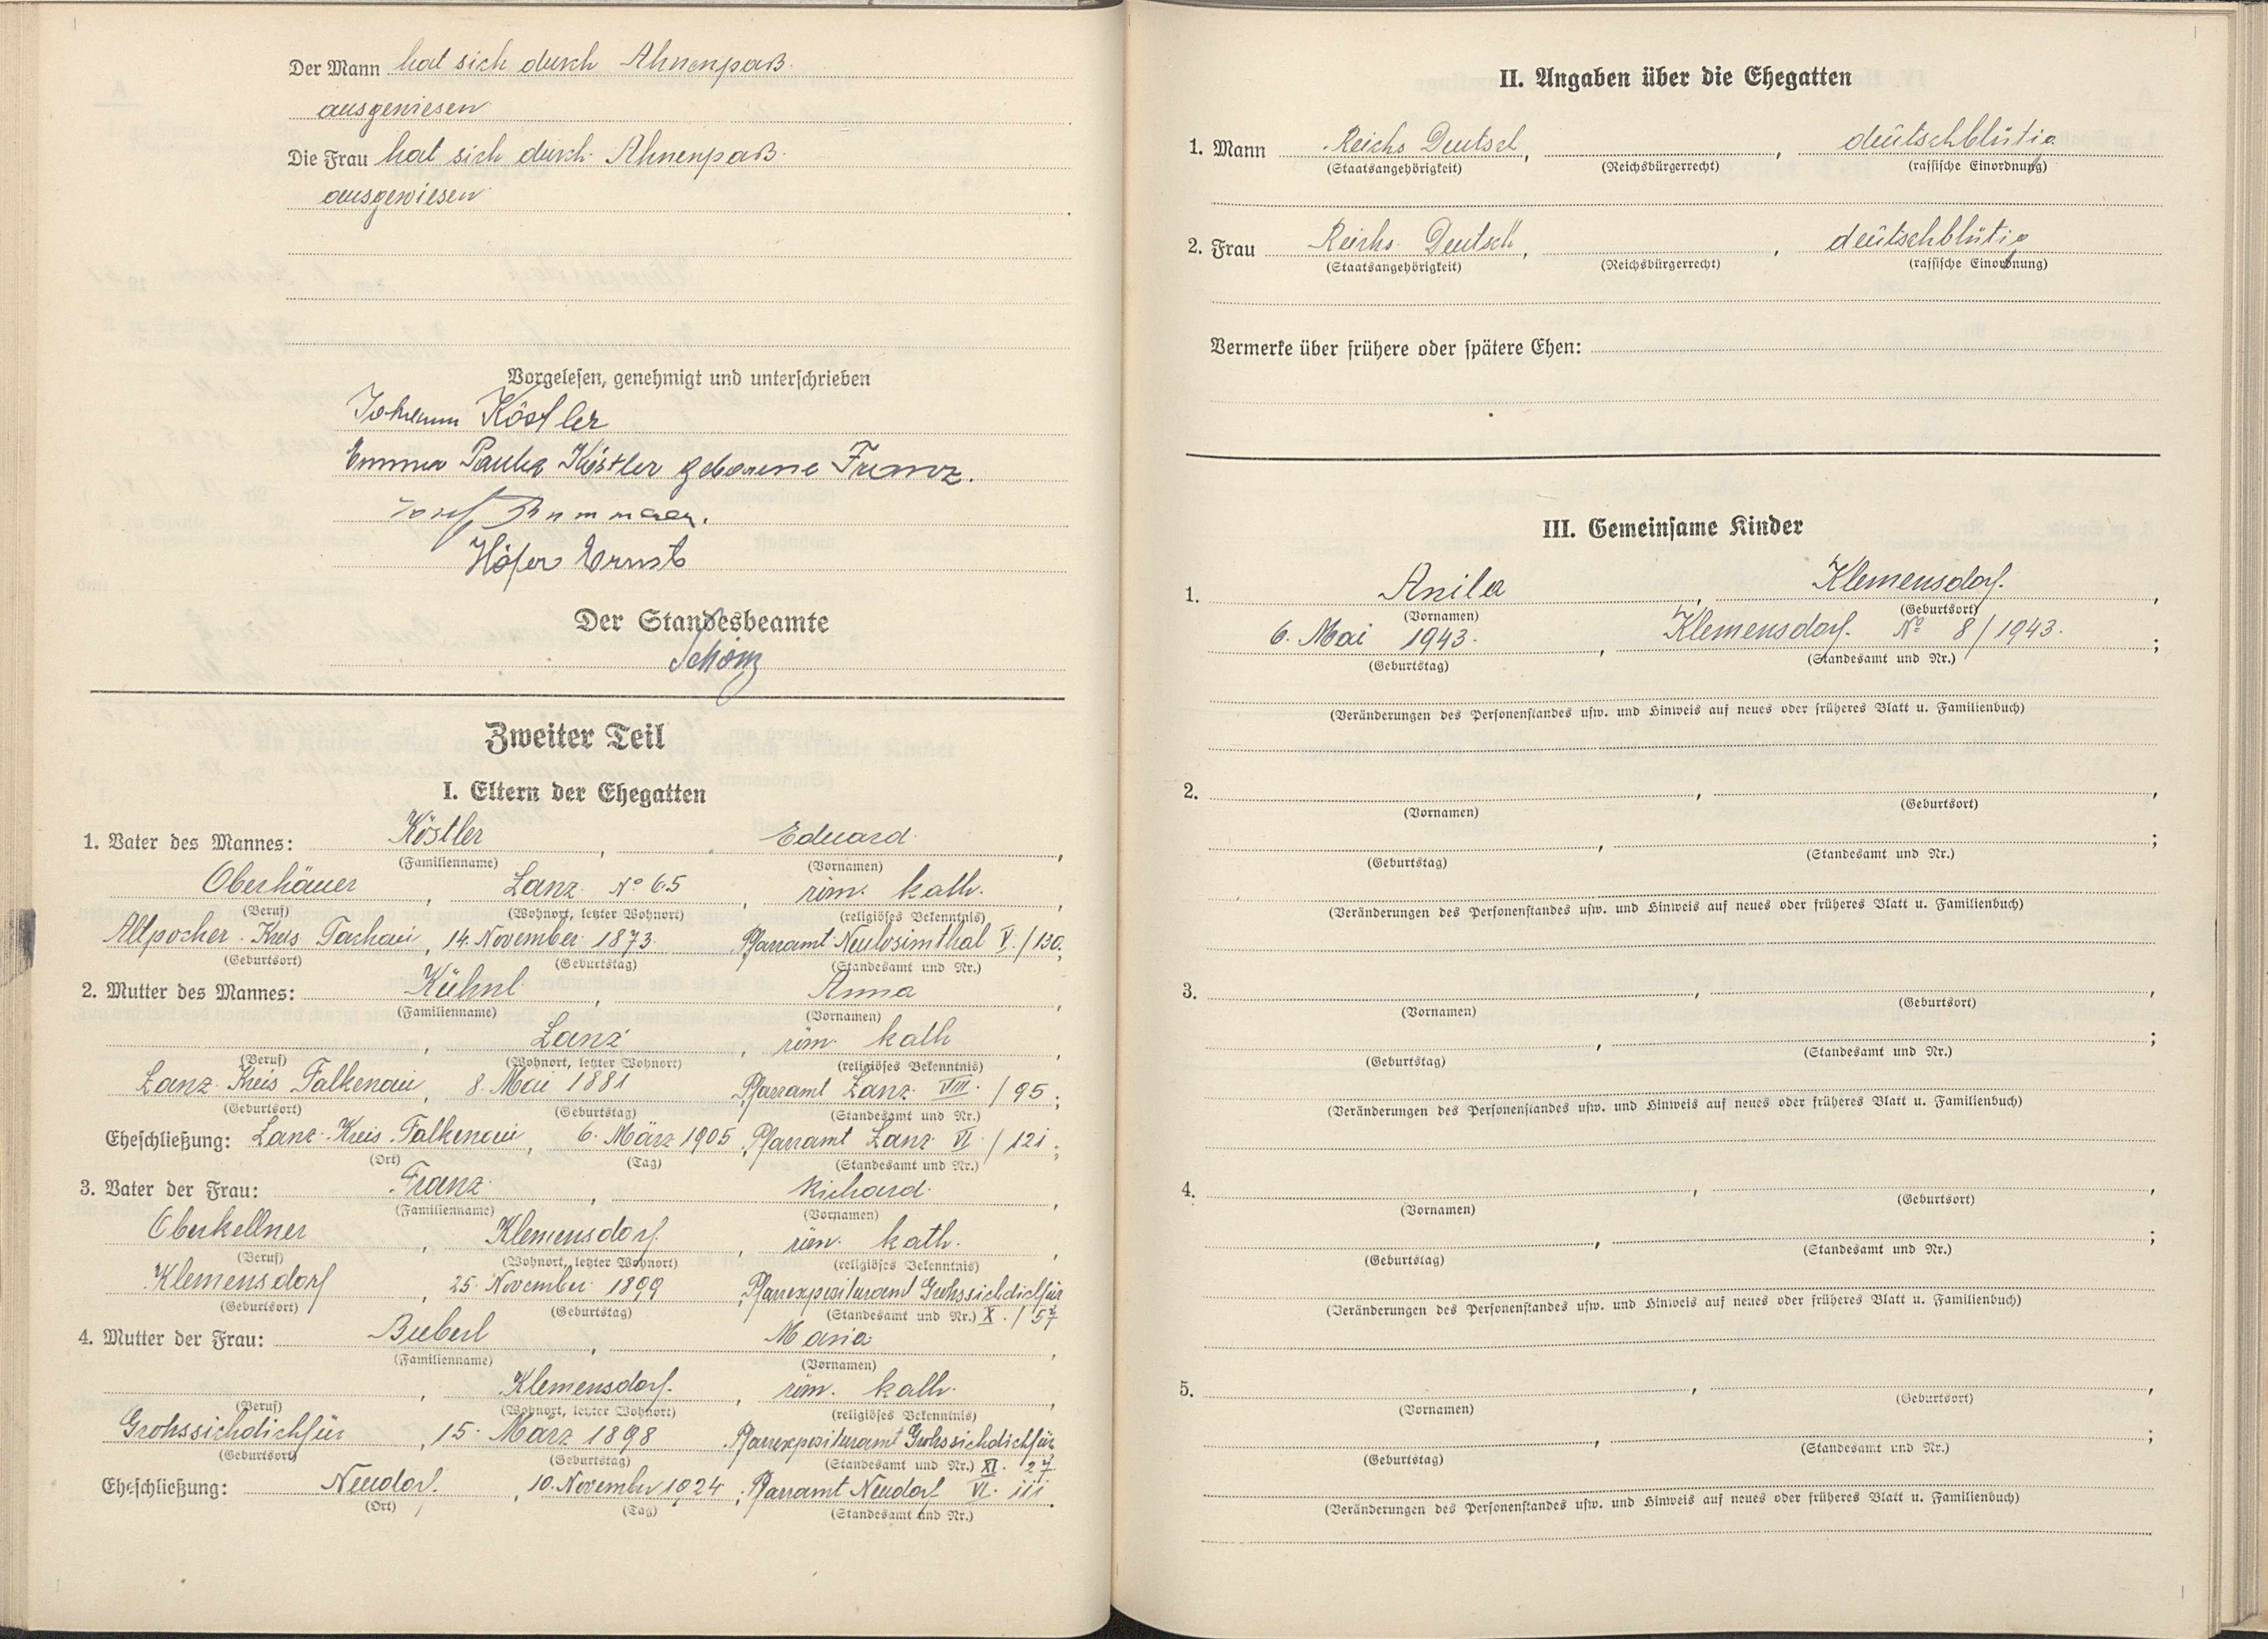 Der Mann hat sich durch Ahnenpaß
ausgewiesen.
Die Frau hat sich durch Ahnenpaß
ausgewiesen.
Vorgelesen, genehmigt und unterschrieben
Johann Köstler
Emma Paula Köstler geborene Franz.
Josef
Höfer Ernst
Der Standesbeamte
Zweiter Teil
I. Eltern der Ehegatten
1. Vater des Mannes: Köstler, Eduard,
(Familienname) (Vornamen)
Oberhäuer, Lanz No 65, röm. kath.,
(Beruf) (Wohnort, letzter Wohnort) (religiöses Bekenntnis)
Altpocher Kreis Tachau, 14. November 1873 Pfarramt Neulosimthal V./130;
(Geburtsort) (Geburtstag) (Standesamt und Nr.)
2. Mutter des Mannes: Kühnl, Anna,
(Familienname) (Vornamen)
, Lanz, röm. kath,
(Beruf) (Wohnort, letzter Wohnort) (religiöses Bekenntnis)
Lanz Kreis Falkenau, 8. Mai 1881 Pfarramt Lanz VIII. / 95;
(Geburtsort) (Geburtstag) (Standesamt und Nr.)
Eheschließung: Lanz Kreis Falkenau, 6. März 1905, Pfarramt Lanz VI / 121;
(Ort) (Tag) (Standesamt und Nr.)
3. Vater der Frau: Franz, Richard,
(Familienname) (Vornamen)
Oberkellner, Klemensdorf, röm. kath.,
(Beruf) (Wohnort, letzter Wohnort) (religiöses Bekenntnis)
Klemensdorf, 25. November 1899, Pfarrexposituramt Grohssichdichfür
(Geburtsort) (Geburtstag) (Standesamt und Nr.) X. / 57
4. Mutter der Frau: Bieberl, Maria,
(Familienname) (Vornamen)
, Klemensdorf, röm. kath.,
(Beruf) (Wohnort, letzter Wohnort) (religiöses Bekenntnis)
Grohssichdichfür, 15. März 1898, Pfarrexposituramt Grohssichdichfür
(Geburtsort) (Geburtstag) (Standesamt und Nr.) XI. 27
Eheschließung: Neudorf, 10. November 1924, Pfarramt Neudorf VI. 111.
(Ort) (Tag) (Standesamt und Nr.)
II. Angaben über die Ehegatten
1. Mann Reichs Deutsch, , deutschblütig
(Staatsangehörigkeit) (Reichsbürgerrecht) (rassische Einordnung)
2. Frau Reichs Deutsch, , deutschblütig
(Staatsangehörigkeit) (Reichsbürgerrecht) (rassische Einordnung)
Vermerke über frühere oder spätere Ehen:
III. Gemeinsame Kinder
1. Anita, Klemensdorf,
(Vornamen) (Geburtsort)
6. Mai 1943, Klemensdorf No 8/1943;
(Geburtstag) (Standesamt und Nr.)
(Veränderungen des Personenstandes usw. und Hinweis auf neues oder früheres Blatt u. Familienbuch)
2. , ,
(Vornamen) (Geburtsort)
, ;
(Geburtstag) (Standesamt und Nr.)
(Veränderungen des Personenstandes usw. und Hinweis auf neues oder früheres Blatt u. Familienbuch)
3. , ,
(Vornamen) (Geburtsort)
, ;
(Geburtstag) (Standesamt und Nr.)
(Veränderungen des Personenstandes usw. und Hinweis auf neues oder früheres Blatt u. Familienbuch)
4. , ,
(Vornamen) (Geburtsort)
, ;
(Geburtstag) (Standesamt und Nr.)
(Veränderungen des Personenstandes usw. und Hinweis auf neues oder früheres Blatt u. Familienbuch)
5. , ,
(Vornamen) (Geburtsort)
, ;
(Geburtstag) (Standesamt und Nr.)
(Veränderungen des Personenstandes usw. und Hinweis auf neues oder früheres Blatt u. Familienbuch)